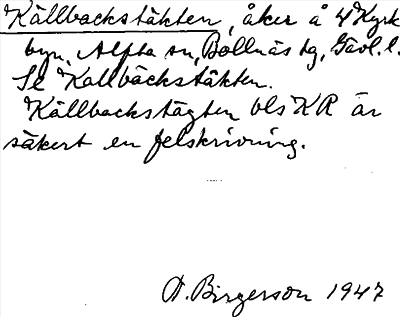 Källbackstäkten, åker å 4 Kyrk
byn, Alfta sn, Bollnäs tg, Gävl. l.
Se Kallbäckstäkten.
Källbackstägten bls KR är
säkert en felskrivning.
A. Birgerson 1947